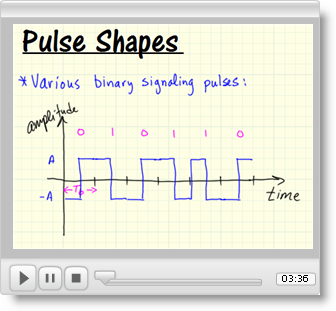 Pulse Shapes
* Various binary signaling pulses:
amplitude
0 1 0 1 1 0
A
-A
Tb
time
03:36